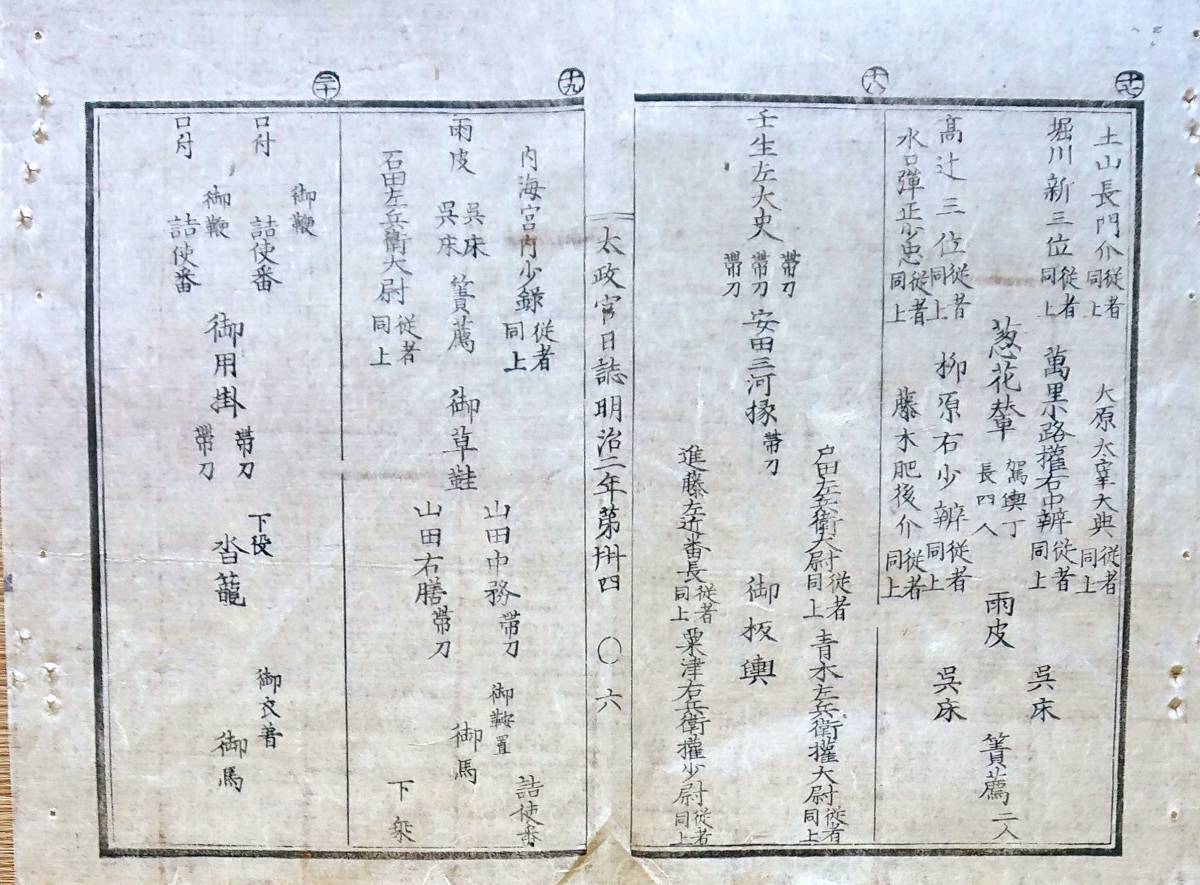 十七
土山長門介 従者 同上
大原太宰大典 従者 同上
堀川新三位 従者 同上
萬里小路權右中辨 従者 同上
呉床
葱花輦 駕輿丁 長四人
雨皮
簀薦 二人
髙辻三位 従者 同上
柳原右少辨 従者 同上
呉床
水口彈正少忠 従者 同上
藤木肥後介 従者 同上
十八
戸田左兵衛大尉 従者 同上
青水左兵衛權大尉 従者 同上
壬生左大史
帶刀
帶刀
帶刀
安田三河掾 帶刀
御板輿
進藤左近番長 従者 同上
粟津右兵衛權少尉 従者 同上
太政官日誌明治二年第卅四 〇 六
十九
内海宮内少録 従者 同上
山田中務 帶刀
詰使番
雨皮
呉床
呉床
簀薦
御草鞋
御鞍置
御馬
石田左兵衛大尉 従者 同上
山田右膳 帶刀
下
二十
御鞭
口付
詰使番
御鞭
口付
詰使番
御用掛
帶刀
帶刀
下役
沓籠
御衣
御馬